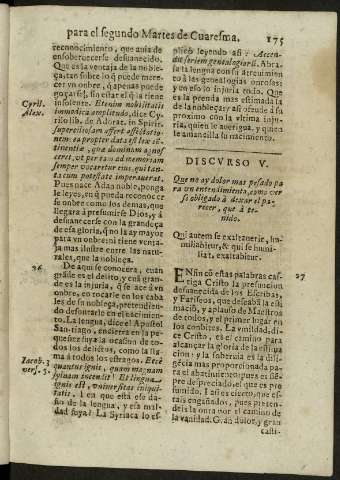 para el segundo Martes de Cuaresma. 175
reconocimiento, que auia de
ensoberuecerse desuanecido.
Que es la ventaja de la noble-
ça, tan sobre lo q puede mere-
cer vn onbre, q apenas puede
goçarse, sin estar el q la tiene
insolente. Etenim nobilitatis
immodica amplitudo, dice Cy-
rilo lib. de Adorat. in Spirit.
Cyril.
Alex.
superciliosam affert affectatio-
nem: ea propter data est lex cō-
tinentiæ, quæ dominium agnos
ceret, vt per tam ad memoriam
semper vocaretur eius, qui tan-
tum cum potestate imperauerat.
Pues nace Adan noble, ponga
le leyes, en q pueda reconocer
se onbre como los demas, que
llegará á presumirse Dios, y á
desuanecerse con la grandeça
de esa gloria, q no la ay mayor
para vn onbre: ni tiene venta-
ja mas ilustre entre las natu-
rales, que la nobleça.
26 De aqui se conocerá, cuan
graue es el delito, y cuā gran-
de es la injuria, q se acē á vn
onbre, en tocarle en los caba-
les de su nobleça, pretendien-
do desonrarle en el nacimien-
to. La lengua, dice el Apostol
San-tiago, encierra en la pe-
queñez suya la ocasion de to-
dos los delitos, como la lla-
ma á todos los estragos. Ecce
Iacob. 3
vers. 5.
quantus ignis, quam magnam
syluam incendit! Et lingua
ignis est, vniuersitas iniqui-
tatis. I en que está ese da-
ño de la lengua, y esa mal-
dad suya? La Syriaca lo es-
plicó leyendo asi: Accen-
dit seriem genealogiarū. Abra-
sa la lengua con su atreuimiento
á las genealogias onrosas;
y en eso lo injuria todo. Que
es la prenda mas estimada la
de la nobleça; y asi ofende á su
proximo con la vltima injur-
ria, quien le auerigua, y quien
le amancilla su nacimiento.
DISCVRSO V.
Que no ay dolor mas pesado pa
ra vn entendimiento, como ver
se obligado á dexar el pa-
recer, que á te-
nido.
Qui autem se exaltauerit, hu-
miliabitur, & qui se humi-
liat, exaltabitur.
27 ENsin cō estas palabras cas-
tiga Cristo la presuncion
desuanecida de los Escribas,
y Fariseos, que deseaban la esti
macio, y aplauso de Maestros
de todos, y el primer lugar en
los conbites. La vmildad, di-
ce Cristo, es el camino para
alcançar la gloria de la estima
cion: y la soberuia es la disgra
cia mas proporcionada pa-
ra el abatimiento: que es siē-
pre despreciado, el que es pre
sumido. I asi es cierto, que es-
tais engañados, pues preten-
deis la onra por el camino de
la vanidad. Gran dolor, y gran
casti-